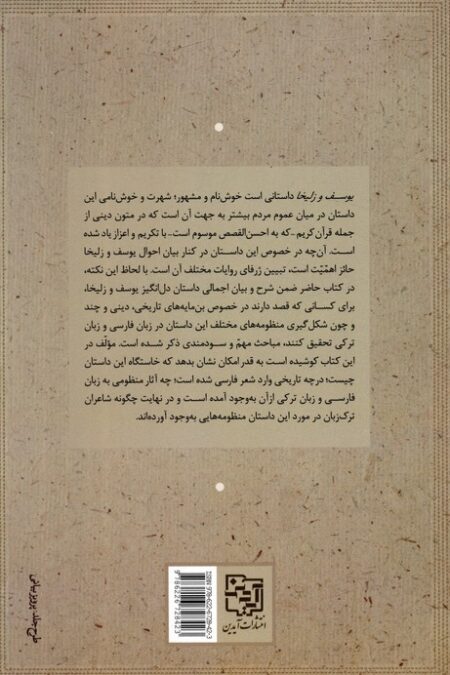 یوسـف و زلیخا داستانی است خوش‌نام و مشهور؛ شهرت و خوش‌نامی این
داستان در میان عموم مردم بیشتر به جهت آن است که در متون دینی از
جمله قرآن‌کریم -که به احسن‌القصص موسوم است- با تکریم و اعزاز یاد شده
است. آن‌چه در خصوص این داستان در کنار بیان احوال یوسف و زلیخا
حائز اهمّیّت است، تبیین ژرفای روایات مختلف آن است. با لحاظ این نکته،
در کتاب حاضر ضمن شرح و بیان اجمالی داستان دل‌انگیز یوسف و زلیخا،
برای کسانی که قصد دارند در خصوص بن‌مایه‌های تاریخی، دینی و چند
و چون شکل‌گیری منظومه‌های مختلف این داستان در زبان فارسی و زبان
ترکی تحقیق کنند، مباحث مهمّ و سودمندی ذکر شده است. مؤلّف در
این کتاب کوشیده است به قدر امکان نشان بدهد که خاستگاه این داستان
چیست؛ درچه تاریخی وارد شعر فارسی شده است؛ چه آثار منظومی به زبان
فارسـی و زبان ترکی ازآن به‌وجود آمده است و در نهایت چگونه شاعران
ترک‌زبان در مورد این داستان منظومه‌هایی به‌وجود آورده‌اند.
انتشارات آیدین
ISBN: 978-622-6728-42-3
9786226728423
طرح جلد: پرویز بیانی